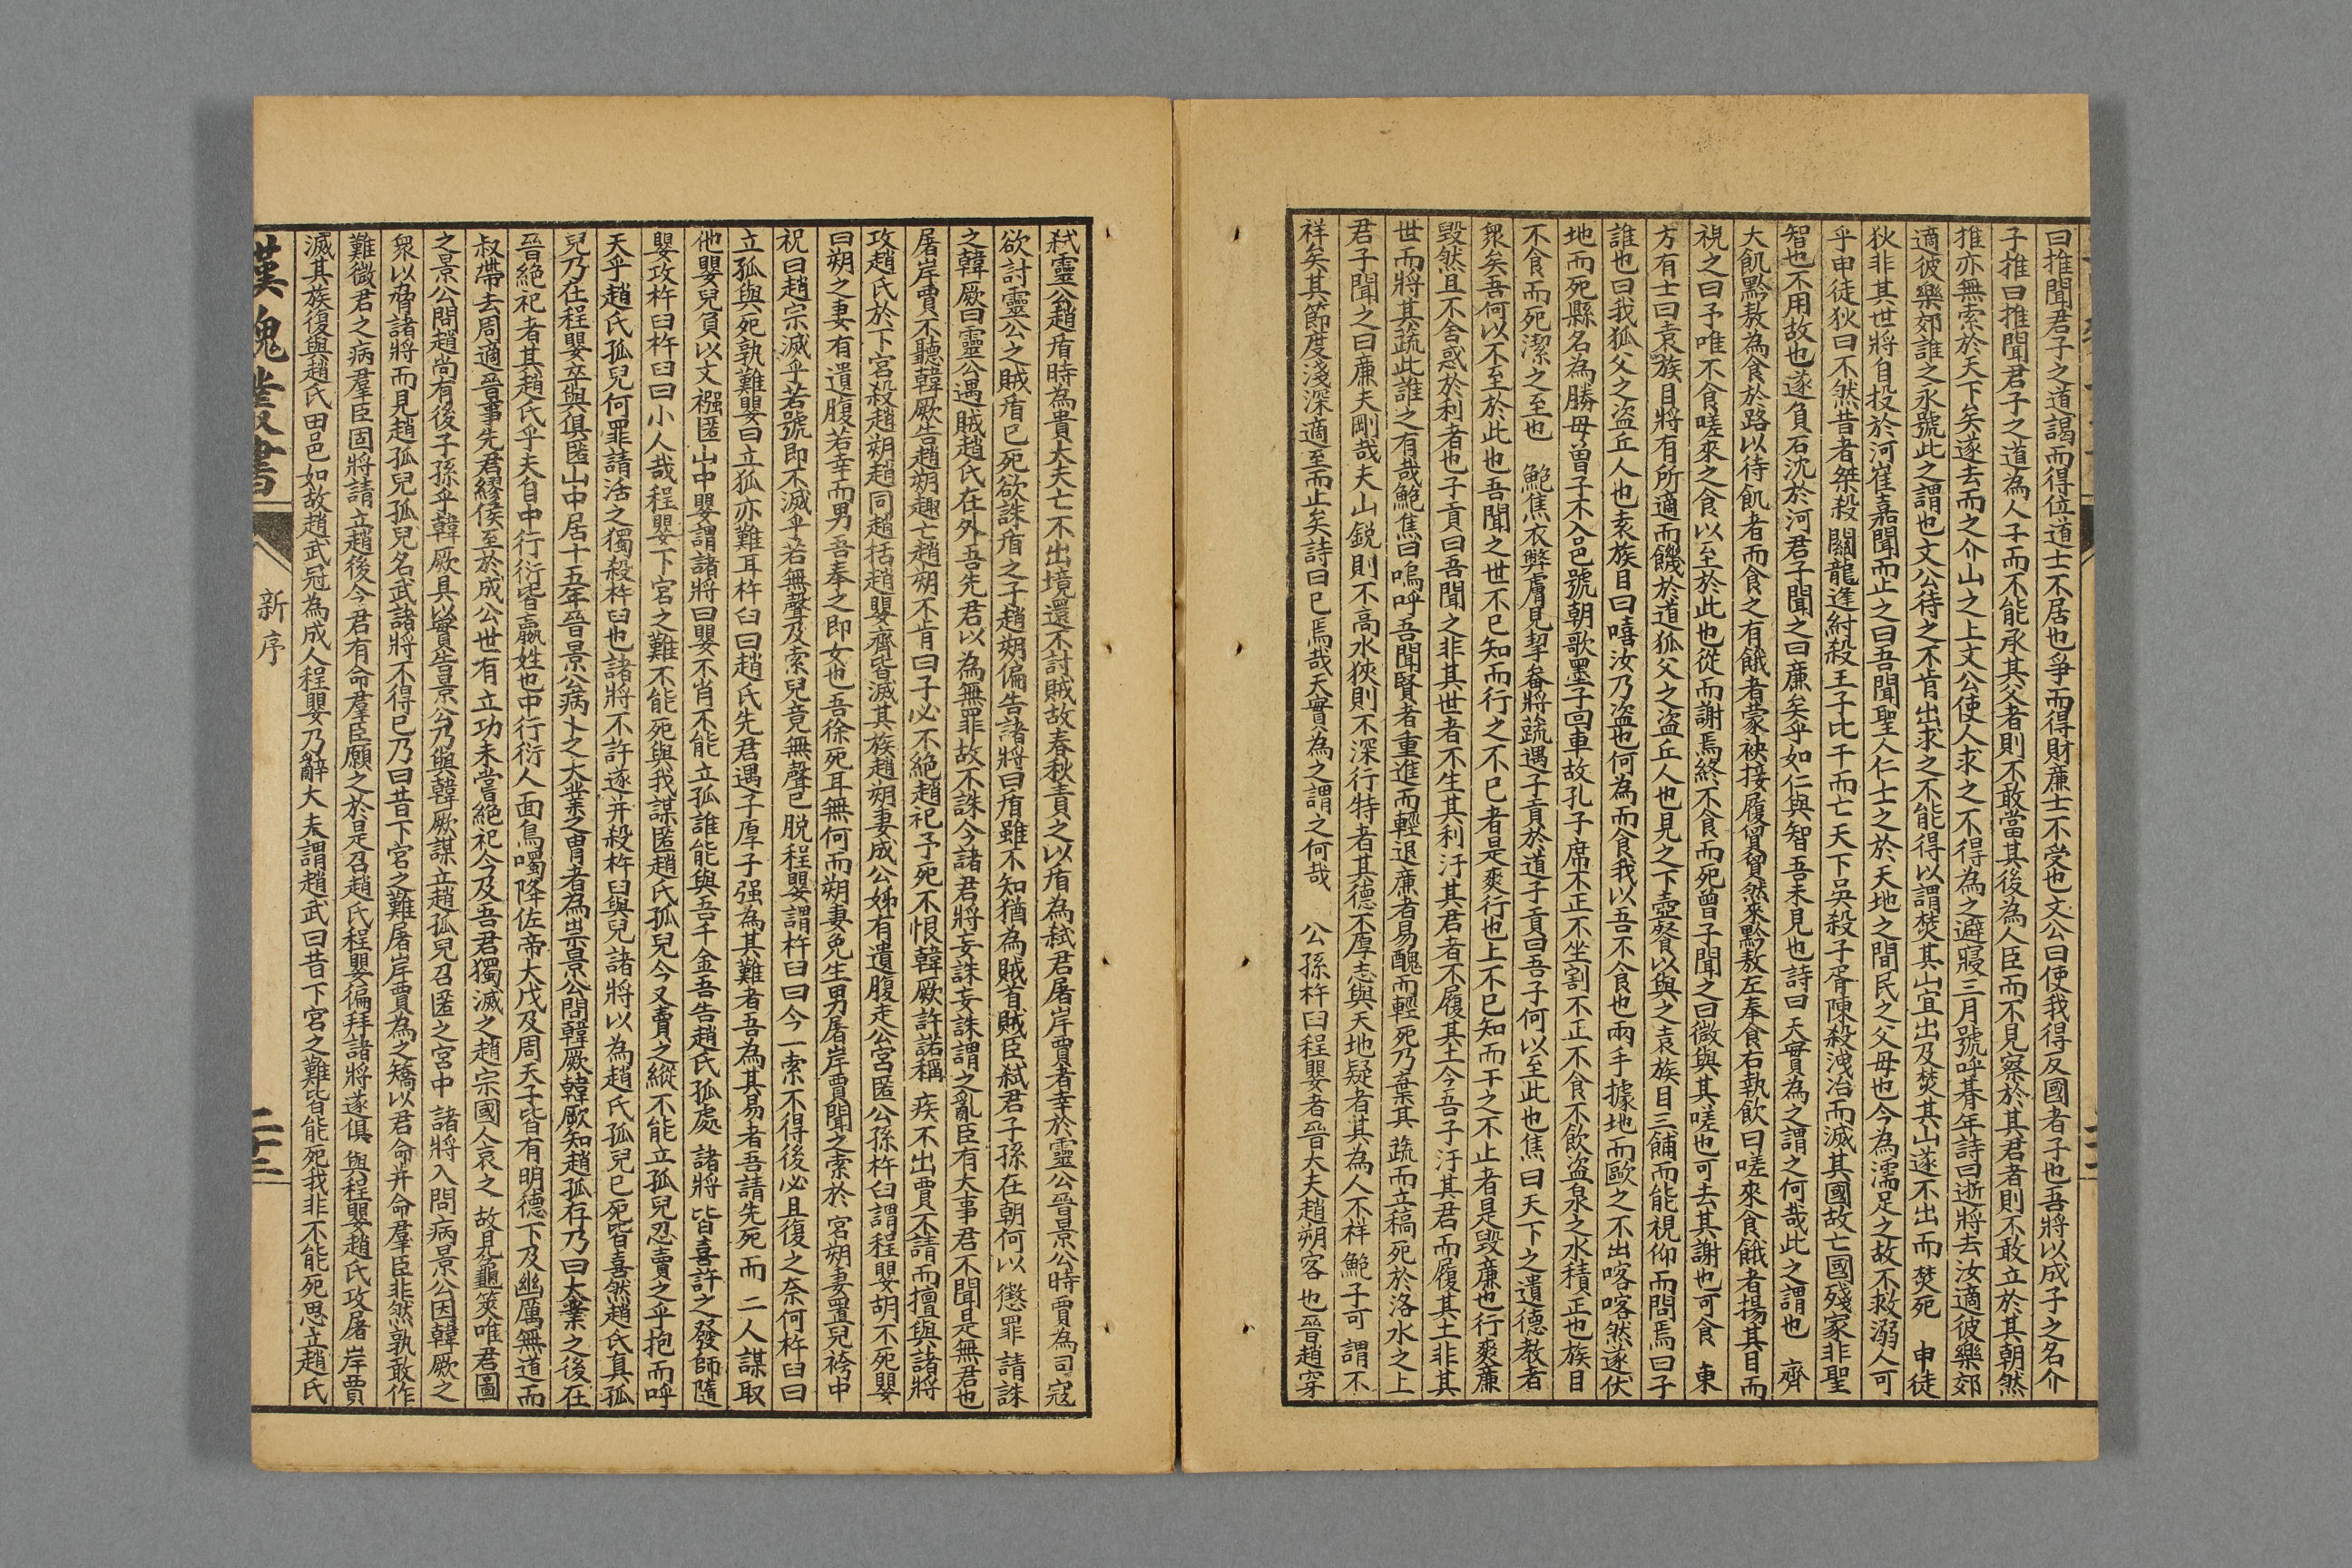 曰推聞君子之道謁而得位道士不居也爭而得財廉士不受也文公曰使我得反國者子也吾將以成子之名介
子推曰推聞君子之道為人子而不能承其父者則不敢當其後為人臣而不見察於其君者則不敢立於其朝然
推亦無索於天下矣遂去而之介山之上文公使人求之不得為之避寢三月號呼朞年詩曰逝將去汝適彼樂郊
適彼樂郊誰之永號此之謂也文公待之不肯出求之不能得以謂焚其山宜出及焚其山遂不出而焚死 申徒
狄非其世將自投於河崔嘉聞而止之曰吾聞聖人仁士之於天地之間民之父母也今為濡足之故不救溺人可
乎申徒狄曰不然昔者桀殺關龍逢紂殺王子比干而亡天下吳殺子胥陳殺洩冶而滅其國故亡國殘家非聖
智也不用故也遂負石沈於河君子聞之曰廉矣乎如仁與智吾未見也詩曰天實為之謂之何哉此之謂也 齊
大飢黔敖為食於路以待飢者而食之有餓者蒙袂接履貿貿然來黔敖左奉食右執飲曰嗟來食餓者揚其目而
視之曰予唯不食嗟來之食以至於此也從而謝焉終不食而死曾子聞之曰微與其嗟也可去其謝也可食 東
方有士曰袁族目將有所適而饑於道狐父之盜丘人也見之下壺餐以與之袁族目三餔而能視仰而問焉曰子
誰也曰我狐父之盜丘人也袁族目曰嘻汝乃盜也何為而食我以吾不食也兩手據地而歐之不出喀喀然遂伏
地而死縣名為勝母曾子不入邑號朝歌墨子回車故孔子席不正不坐割不正不食不飲盜泉之水積正也族目
不食而死潔之至也 鮑焦衣弊膚見挈畚將蔬遇子貢於道子貢曰吾子何以至此也焦曰天下之遺德教者
衆矣吾何以不至於此也吾聞之世不已知而行之不已者是爽行也上不已知而干之不止者是毀廉也行爽廉
毀然且不舍惑於利者也子貢曰吾聞之非其世者不生其利汙其君者不履其土今吾子汙其君而履其土非其
世而將其蔬此誰之有哉鮑焦曰嗚呼吾聞賢者重進而輕退廉者易醜而輕死乃棄其蔬而立稿死於洛水之上
君子聞之曰廉夫剛哉夫山銳則不高水狹則不深行特者其德不厚志與天地疑者其為人不祥鮑子可謂不
祥矣其節度淺深適至而止矣詩曰已焉哉天實為之謂之何哉 公孫杵臼程嬰者晉大夫趙朔客也晉趙穿
弒靈公趙盾時為貴大夫亡不出境還不討賊故春秋責之以盾為弒君屠岸賈者幸於靈公晉景公時賈為司寇
欲討靈公之賊盾已死欲誅盾之子趙朔徧告諸將曰盾雖不知猶為賊首賊臣弒君子孫在朝何以懲罪請誅
之韓厥曰靈公遇賊趙氏在外吾先君以為無罪故不誅今諸君將妄誅妄誅謂之亂臣有大事君不聞是無君也
屠岸賈不聽韓厥告趙朔趣亡趙朔不肯曰子必不絕趙祀予死不恨韓厥許諾稱疾不出賈不請而擅與諸將
攻趙氏於下宮殺趙朔趙同趙括趙嬰齊皆滅其族趙朔妻成公姊有遺腹走公宮匿公孫杵臼謂程嬰胡不死嬰
曰朔之妻有遺腹若幸而男吾奉之即女也吾徐死耳無何而朔妻免生男屠岸賈聞之索於宮朔妻置兒袴中
祝曰趙宗滅乎若號即不滅乎若無聲及索兒竟無聲已脫程嬰謂杵臼曰今一索不得後必且復之奈何杵臼曰
立孤與死孰難嬰曰立孤亦難耳杵臼曰趙氏先君遇子厚子强為其難者吾為其易者吾請先死而二人謀取
他嬰兒負以文褓匿山中嬰謂諸將曰嬰不肖不能立孤誰能與吾千金吾告趙氏孤處諸將皆喜許之發師隨
嬰攻杵臼杵臼曰小人哉程嬰下宮之難不能死與我謀匿趙氏孤兒今又賣之縱不能立孤兒忍賣之乎抱而呼
天乎趙氏孤兒何罪請活之獨殺杵臼也諸將不許遂并殺杵臼與兒諸將以為趙氏孤兒已死皆喜然趙氏真孤
兒乃在程嬰卒與俱匿山中居十五年晉景公病卜之大業之冑者為祟景公問韓厥韓厥知趙孤存乃曰大業之後在
晉絕祀者其趙氏乎夫自中行衍皆嬴姓也中行衍人面鳥噣降佐帝大戊及周天子皆有明德下及幽厲無道而
叔帶去周適晉事先君繆侯至於成公世有立功未嘗絕祀今及吾君獨滅之趙宗國人哀之故見龜筴唯君圖
之景公問趙尚有後子孫乎韓厥具以實告景公乃與韓厥謀立趙孤兒召匿之宮中諸將入問病景公因韓厥之
衆以脅諸將而見趙孤兒孤兒名武諸將不得已乃曰昔下宮之難屠岸賈為之矯以君命并命羣臣非然孰敢作
難微君之病羣臣固將請立趙後今君有命羣臣願之於是召趙氏程嬰徧拜諸將遂俱與程嬰趙氏攻屠岸賈
滅其族復與趙氏田邑如故趙武冠為成人程嬰乃辭大夫謂趙武曰昔下宮之難皆能死我非不能死思立趙氏
漢魏叢書 新序 二十二